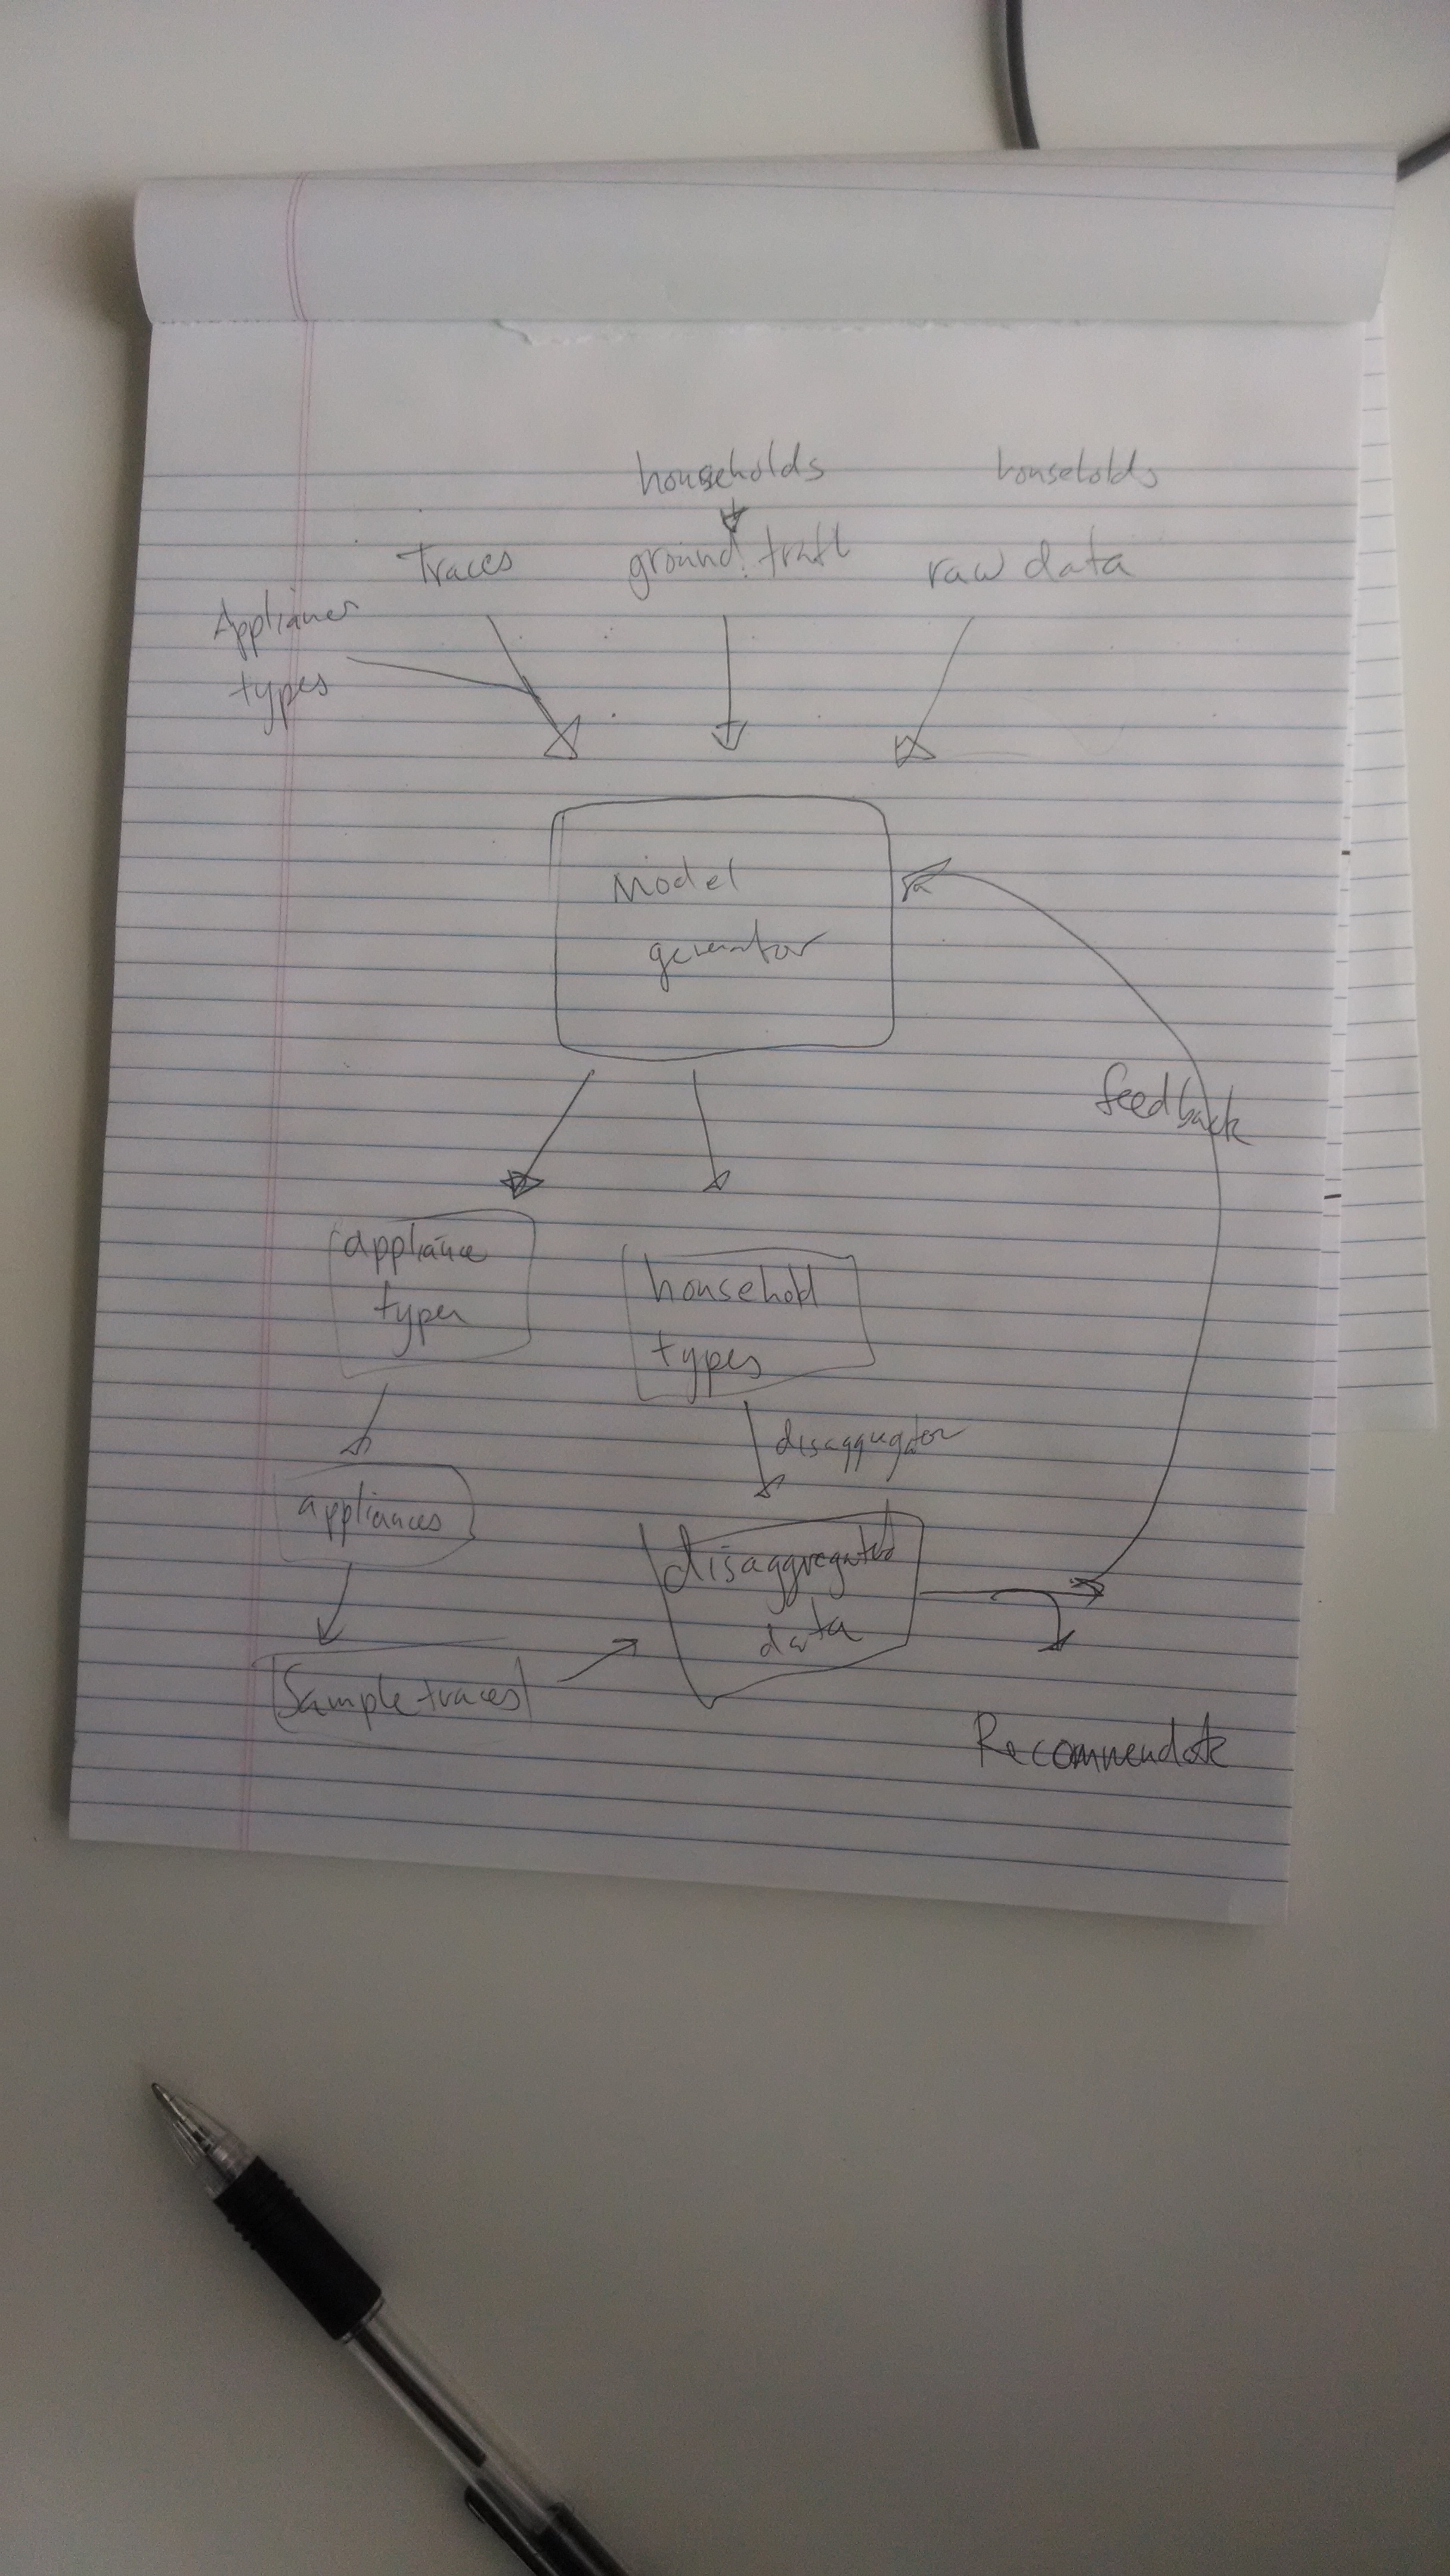 households
households
Traces
ground truth
raw data
Appliances
types
Model
generator
feedback
appliance
types
household
types
disaggregator
appliances
disaggregated
data
Sample traces